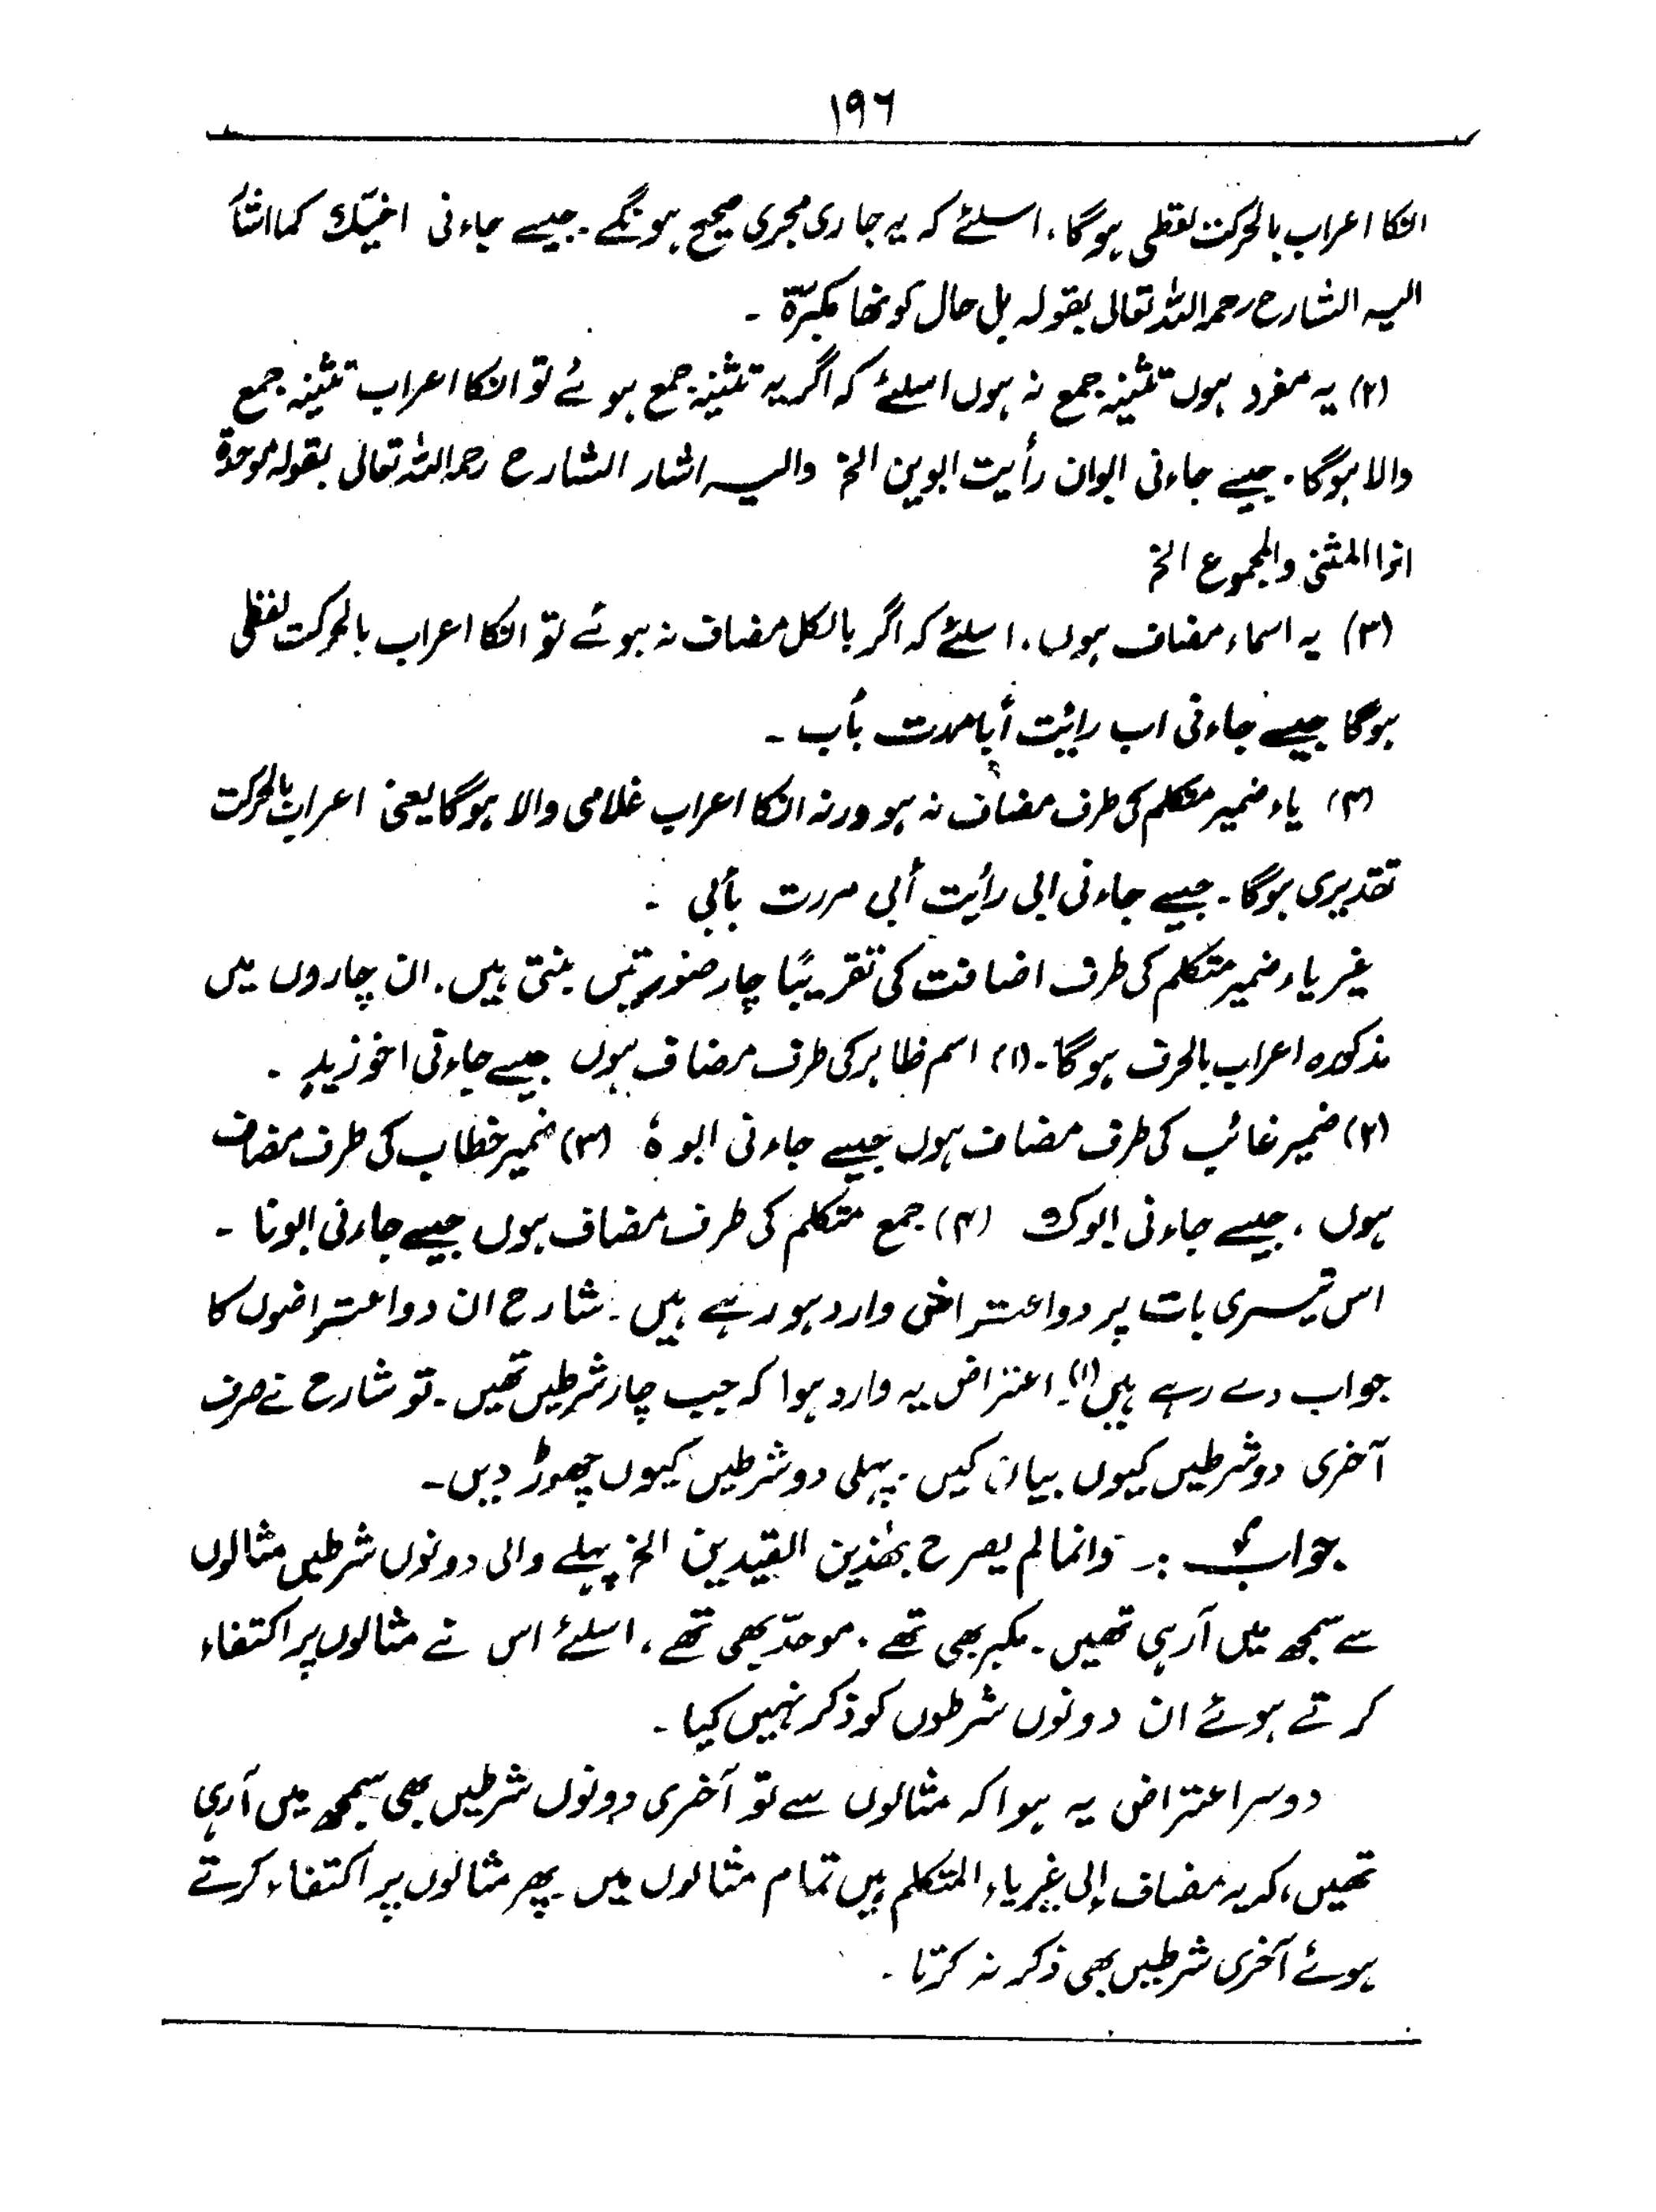 ۱۹۶
انکا اعراب بالحرکت لفظی ہوگا، اسلئے کہ یہ جاری مجری صحیح ہونگے۔ جیسے جاءنی اخیّک کما اشار
الیہ الشارح رحمہ اللہ تعالی بقولہ بل حال کونھا مکبرّۃ ۔
(۲) یہ مفرد ہوں تثنیہ جمع نہ ہوں اسلئے کہ اگر یہ تثنیہ جمع ہوئے تو انکا اعراب تثنیہ جمع
والا ہوگا۔ جیسے جاءنی ابوان رأیت ابوین الخ والیہ اشار الشارح رحمہ اللہ تعالی بقولہ موحدۃ
اذا المثنی والمجموع الخ
(۳) یہ اسماء مضاف ہوں، اسلئے کہ اگر بالکل مضاف نہ ہوئے تو انکا اعراب بالحرکت لفظی
ہوگا جیسے جاءنی اب رائیت أبا مررت بأب ۔
(۴) یاء ضمیر متکلم کی طرف مضاف نہ ہو ورنہ انکا اعراب غلامی والا ہوگا یعنی اعراب بالحرکت
تقدیری ہوگا۔ جیسے جاءنی ابی رأیت أبی مررت بأبی ۔
غیر یاء ضمیر متکلم کی طرف اضافت کی تقریبًا چار صورتیں بنتی ہیں۔ ان چاروں میں
مذکورہ اعراب بالحرف ہوگا۔ (۱) اسم ظاہر کی طرف مضاف ہوں جیسے جاءنی اخو زیدٍ ۔
(۲) ضمیر غائب کی طرف مضاف ہوں جیسے جاءنی ابوہٗ (۳) ضمیر خطاب کی طرف مضاف
ہوں ، جیسے جاءنی ابوک (۴) جمع متکلم کی طرف مضاف ہوں جیسے جاءنی ابونا ۔
اس تیسری بات پر دو اعتراض وارد ہو رہے ہیں۔ شارح ان دو اعتراضوں کا
جواب دے رہے ہیں (۱)۔ اعتراض یہ وارد ہوا کہ جب چار شرطیں تھیں۔ تو شارح نے صرف
آخری دو شرطیں کیوں بیان کیں۔ پہلی دو شرطیں کیوں چھوڑ دیں۔
جواب :۔ وانما لم یصرح بھٰذین القیدین الخ پہلے والی دونوں شرطیں مثالوں
سے سمجھ میں آرہی تھیں۔ مکبر بھی تھے ۔ موحدّ بھی تھے ، اسلئے اس نے مثالوں پر اکتفاء
کرتے ہوئے ان دونوں شرطوں کو ذکر نہیں کیا ۔
دوسرا اعتراض یہ ہوا کہ مثالوں سے تو آخری دونوں شرطیں بھی سمجھ میں آرہی
تھیں، کہ یہ مضاف إلی غیر یاء المتکلم ہیں تمام مثالوں میں پھر مثالوں پر اکتفاء کرتے
ہوئے آخری شرطیں بھی ذکر نہ کرتا ۔